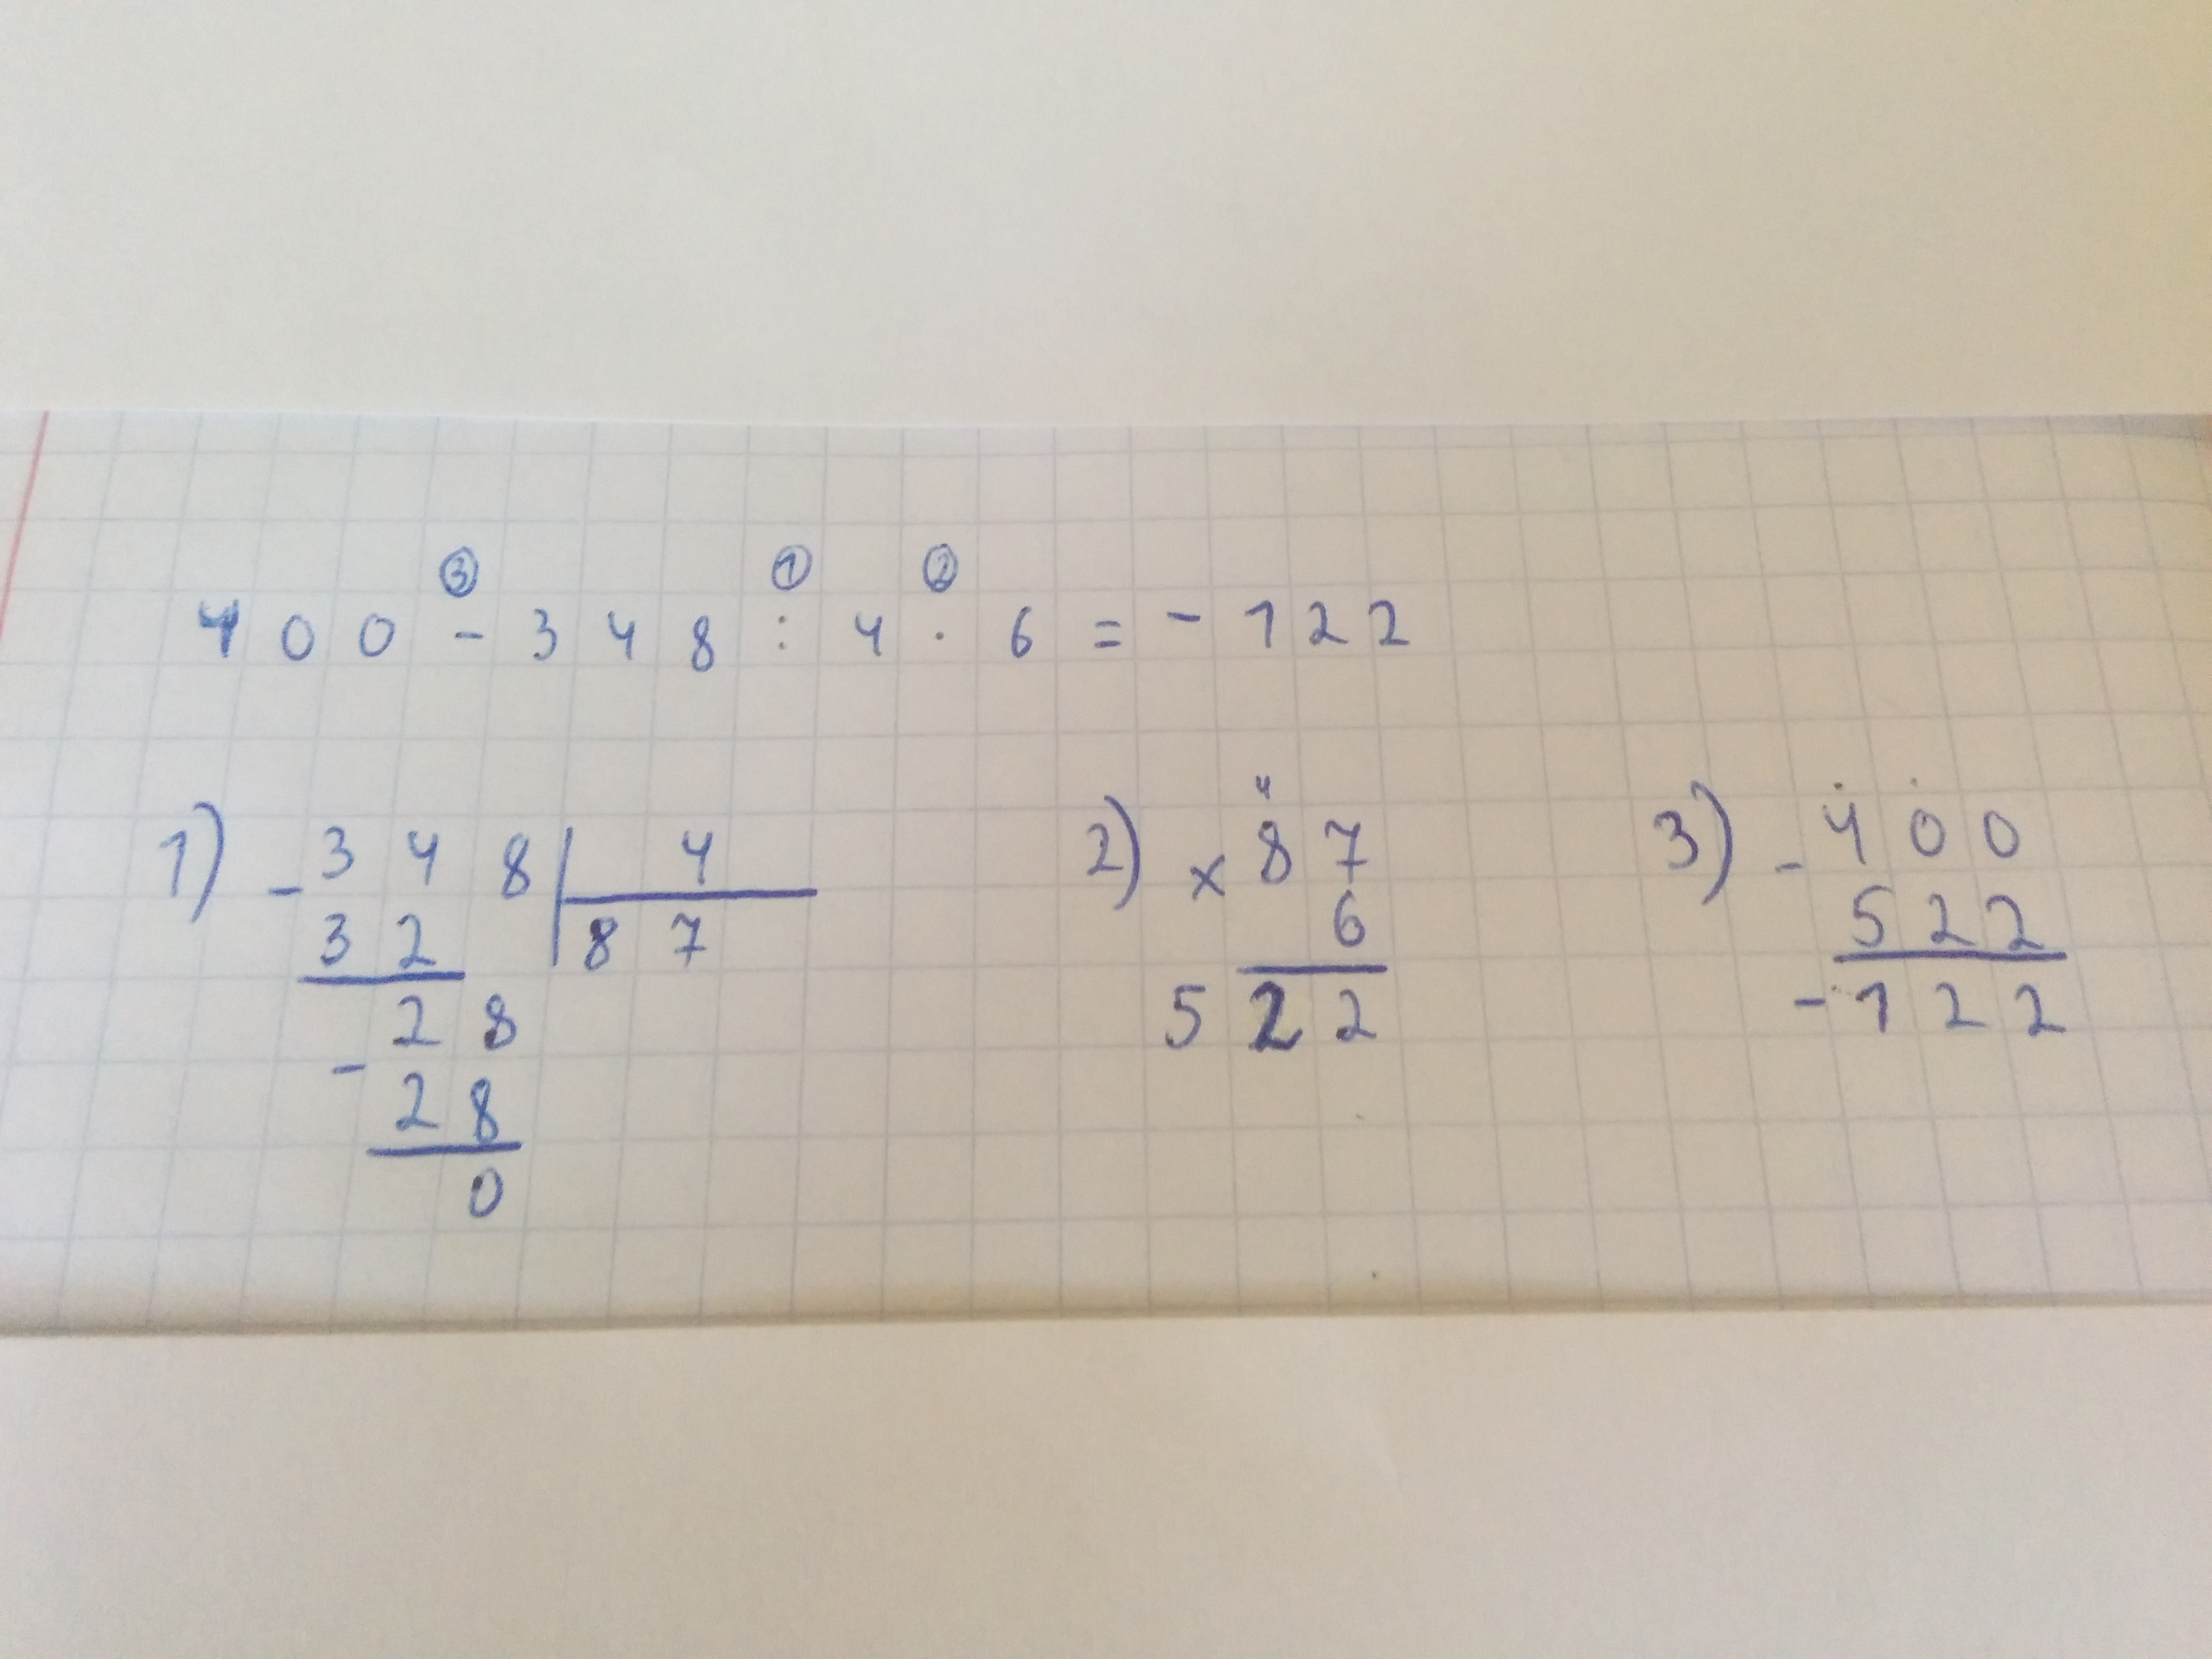 ③ ① ②
400 - 348 : 4 · 6 = -122
4
1) -348 | 4 2) × 87 3) - 400
32 87 6 522
28 522 -122
- 28
0